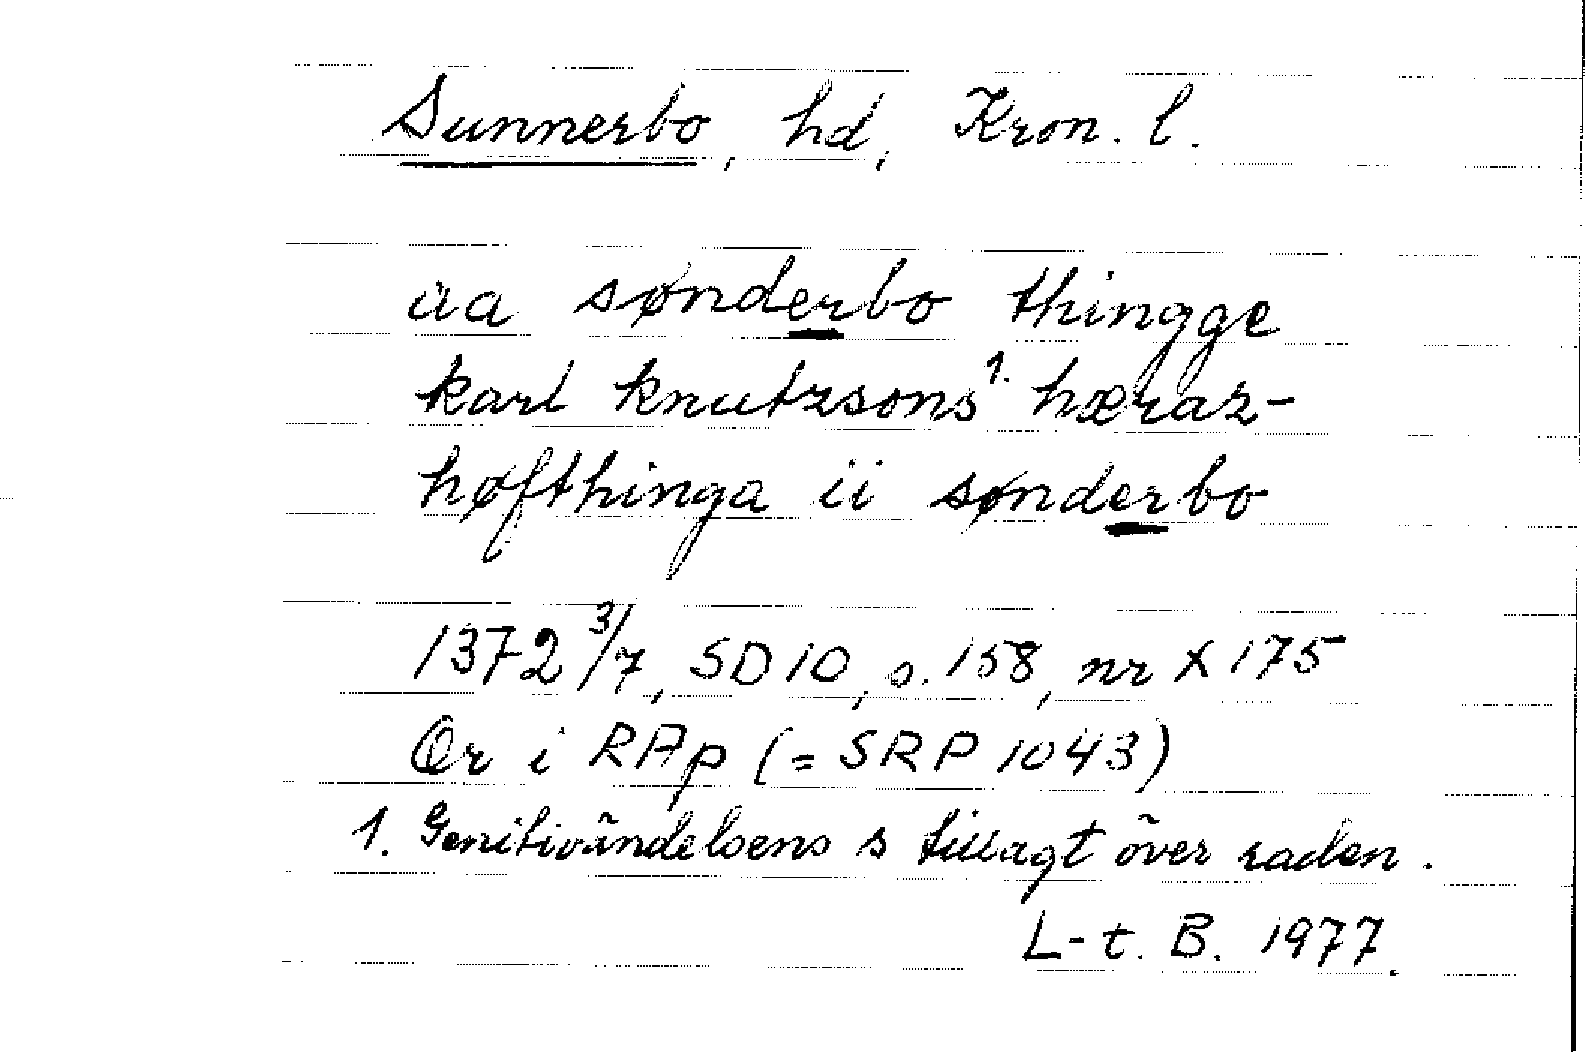 Sunnerbo, hd, Kron. l.
aa sønderbo thingge
karl knutzsons 1. hæraz-
høfthinga ii sønderbo
1372 3/7, SD 10, s. 158, nr X 175
Or i RAp (= SRP 1043)
1. Genitivändelsens s tillagt över raden.
L-t. B. 1977.